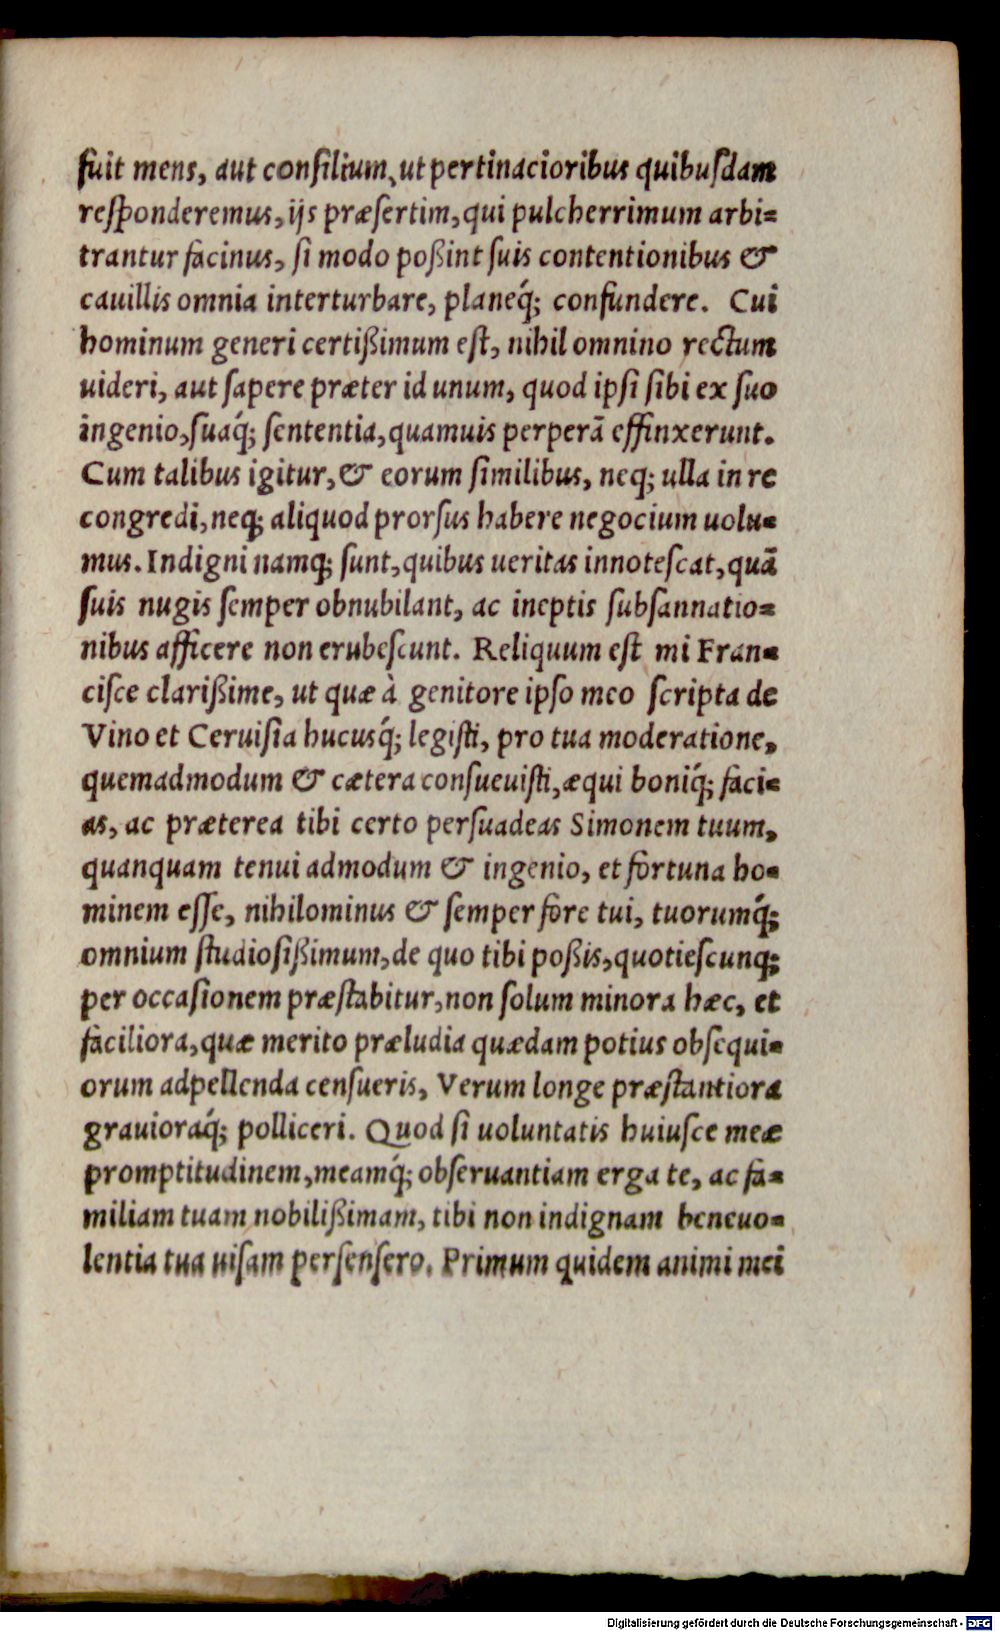 fuit mens, aut conſilium, ut pertinacioribus quibuſdam
reſponderemus, ijs præſertim, qui pulcherrimum arbi=
trantur facinus, ſi modo poßint ſuis contentionibus &
cauillis omnia interturbare, planeq́; confundere. Cui
hominum generi certißimum eſt, nihil omnino rectum
uideri, aut ſapere præter id unum, quod ipſi ſibi ex ſuo
ingenio, ſuaq́; ſententia, quamuis perperā effinxerunt.
Cum talibus igitur, & eorum ſimilibus, neq; ulla in re
congredi, neq; aliquod prorſus habere negocium uolu=
mus. Indigni namq; ſunt, quibus ueritas innoteſcat, quā
ſuis nugis ſemper obnubilant, ac ineptis ſubſannatio=
nibus afficere non erubeſcunt. Reliquum eſt mi Fran=
ciſce clarißime, ut quæ à genitore ipſo meo ſcripta de
Vino et Ceruiſia hucusq́; legiſti, pro tua moderatione,
quemadmodum & cætera conſueuiſti, æqui boniq́; faci=
as, ac præterea tibi certo perſuadeas Simonem tuum,
quanquam tenui admodum & ingenio, et fortuna ho=
minem eſſe, nihilominus & ſemper fore tui, tuorumq́;
omnium ſtudioſißimum, de quo tibi poßis, quotieſcunq;
per occaſionem præſtabitur, non ſolum minora hæc, et
faciliora, quæ merito præludia quædam potius obſequi=
orum adpellenda cenſueris, Verum longe præſtantiora
grauioraq́; polliceri. Quod ſi uoluntatis huiuſce meæ
promptitudinem, meamq́; obſeruantiam erga te, ac fa=
miliam tuam nobilißimam, tibi non indignam beneuo=
lentia tua uiſam perſenſero. Primum quidem animi mei
Digitalisierung gefördert durch die Deutsche Forschungsgemeinschaft - DFG